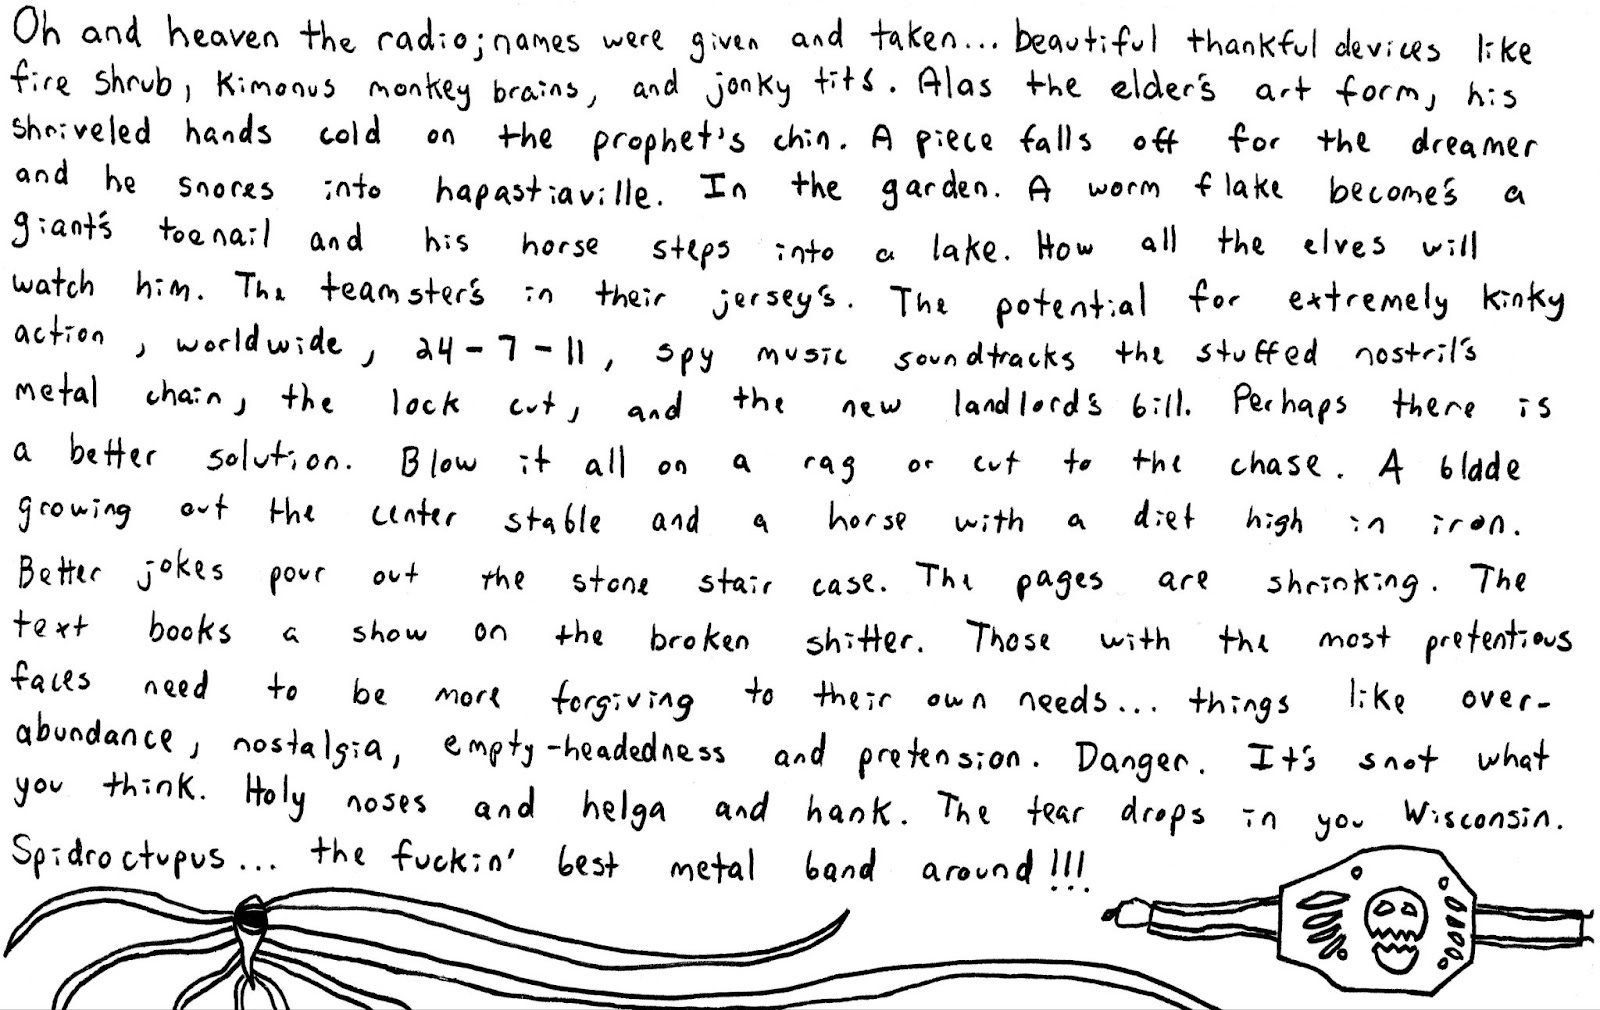 Oh and heaven the radio; names were given and taken... beautiful thankful devices like
fire shrub, Kimonus monkey brains, and jonky tits. Alas the elder's art form, his
shriveled hands cold on the prophet's chin. A piece falls off for the dreamer
and he snores into hapastiaville. In the garden. A worm flake become's a
giant's toenail and his horse steps into a lake. How all the elves will
watch him. The teamster's in their jersey's. The potential for extremely kinky
action, worldwide, 24-7-11, spy music soundtracks the stuffed nostril's
metal chain, the lock cut, and the new landlord's bill. Perhaps there is
a better solution. Blow it all on a rag or cut to the chase. A blade
growing out the center stable and a horse with a diet high in iron.
Better jokes pour out the stone stair case. The pages are shrinking. The
text books a show on the broken shitter. Those with the most pretentious
faces need to be more forgiving to their own needs... things like over-
abundance, nostalgia, empty-headedness and pretension. Danger. It's snot what
you think. Holy noses and helga and hank. The tear drops in you Wisconsin.
Spidroctupus... the fuckin' best metal band around!!!